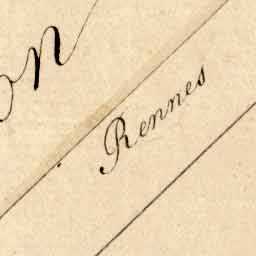 on
Rennes